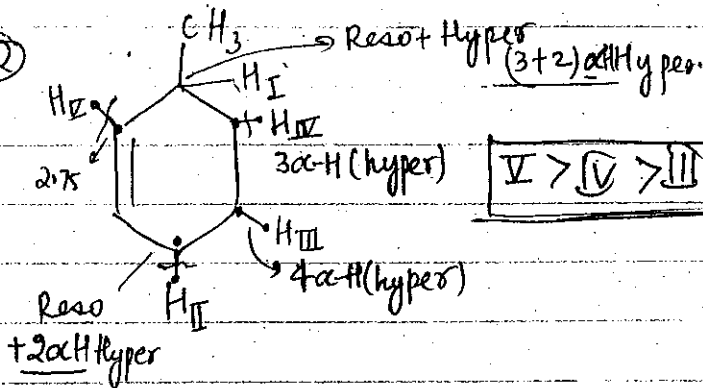 2
CH3
Reso + Hyper
(3+2) αH Hyper.
H I
H V
H IV
2.75
3α-H (hyper)
V > IV > III
H III
4α-H (hyper)
Reso
+2αH Hyper
H II